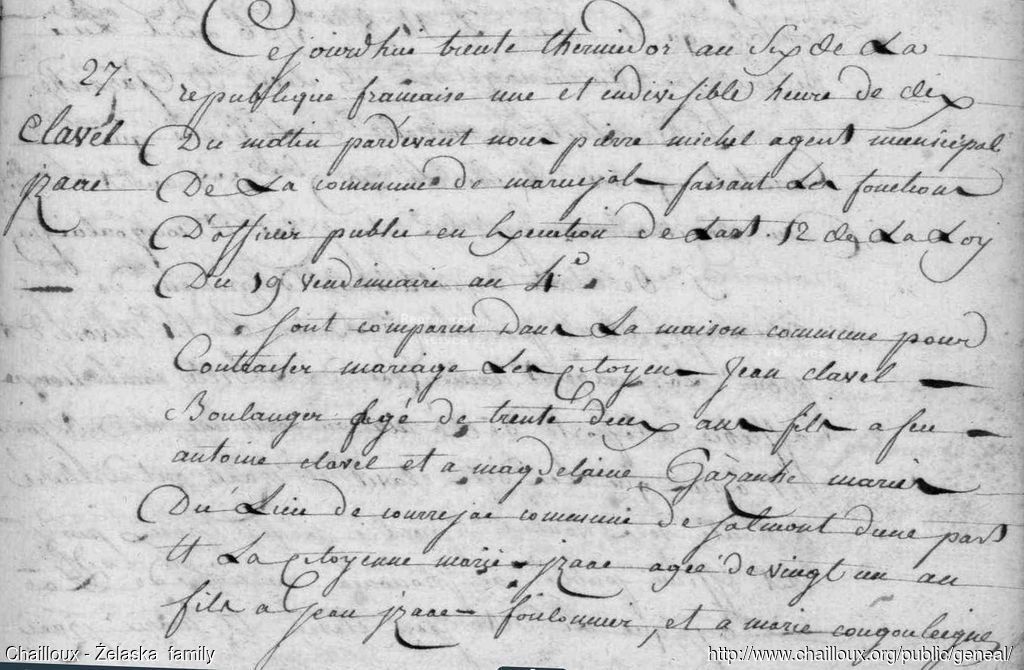 Cejourd'hui trente thermidor an Six de La
27
republique francaise une et indivisible heure de dix
Clavel
Du matin pardevant nous pierre michel agent municipal
izaac
De La commune de maruejols faisant Les fonctions
D'officier public en Execution de Lart. 12 de La Loy
Du 19 vendemiaire an 4e.
Sont comparus Dans La maison commune pour
Contracter mariage Les Citoyens Jean clavel
Boulanger agé de trente deux ans fils a feu
antoine clavel et a magdelaine Gazanhe mariés
Du Lieu de courrejac commune de Salmont dune part
Et La Citoyenne marie izaac ageé de vingt un an
fille a Jean izaac foulonnier, et a marie
Chailloux - Żelaska family
http://www.chailloux.org/public/geneal/